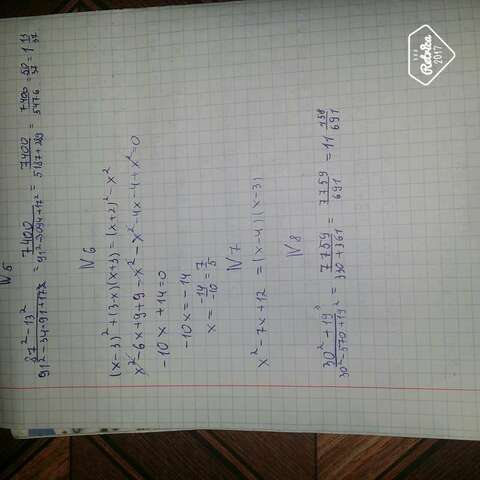 N 5
87² - 13² / 91² - 34·91 + 17² = 7400 / 91² - 3094 + 17² = 7400 / 5187 + 289 = 7400 / 5476 = 50 / 37 = 1 13/37
N 6
(x-3)² + (3-x)(x+3) = (x+2)² - x²
x² - 6x + 9 + 9 - x² - x² - 4x - 4 + x² = 0
-10x + 14 = 0
-10x = -14
x = -14/-10 = 7/5
N 7
x² - 7x + 12 = (x-4)(x-3)
N 8
30² + 19³ / 30² - 570 + 19² = 7759 / 330 + 361 = 7759 / 691 = 11 158/691
Retrica
2017